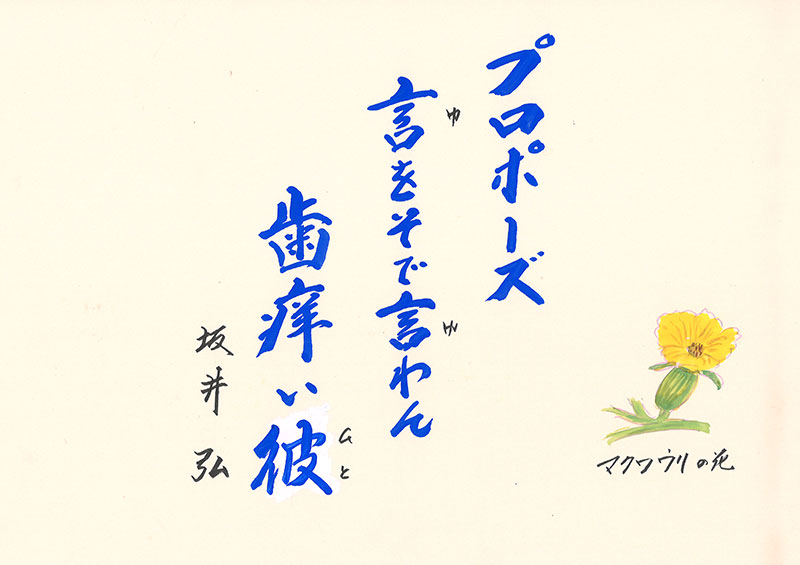 プロポーズ
言をそで言わん
ゆ
ゆ
歯痒い彼
ひと
坂井 弘
マクワウリの花